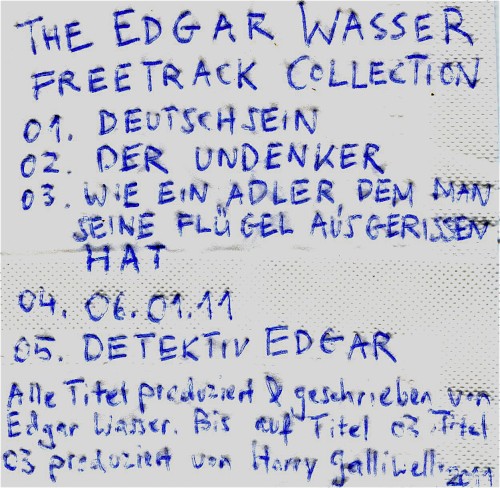 THE EDGAR WASSER
FREETRACK COLLECTION
01. DEUTSCHSEIN
02. DER UNDENKER
03. WIE EIN ADLER, DEM MAN
SEINE FLÜGEL AUSGERISSEN
HAT
04. 06.01.11
05. DETEKTIV EDGAR
Alle Titel produziert & geschrieben von
Edgar Wasser. Bis auf Titel 03 Titel
03 produziert von Harry Galliwelli
2011